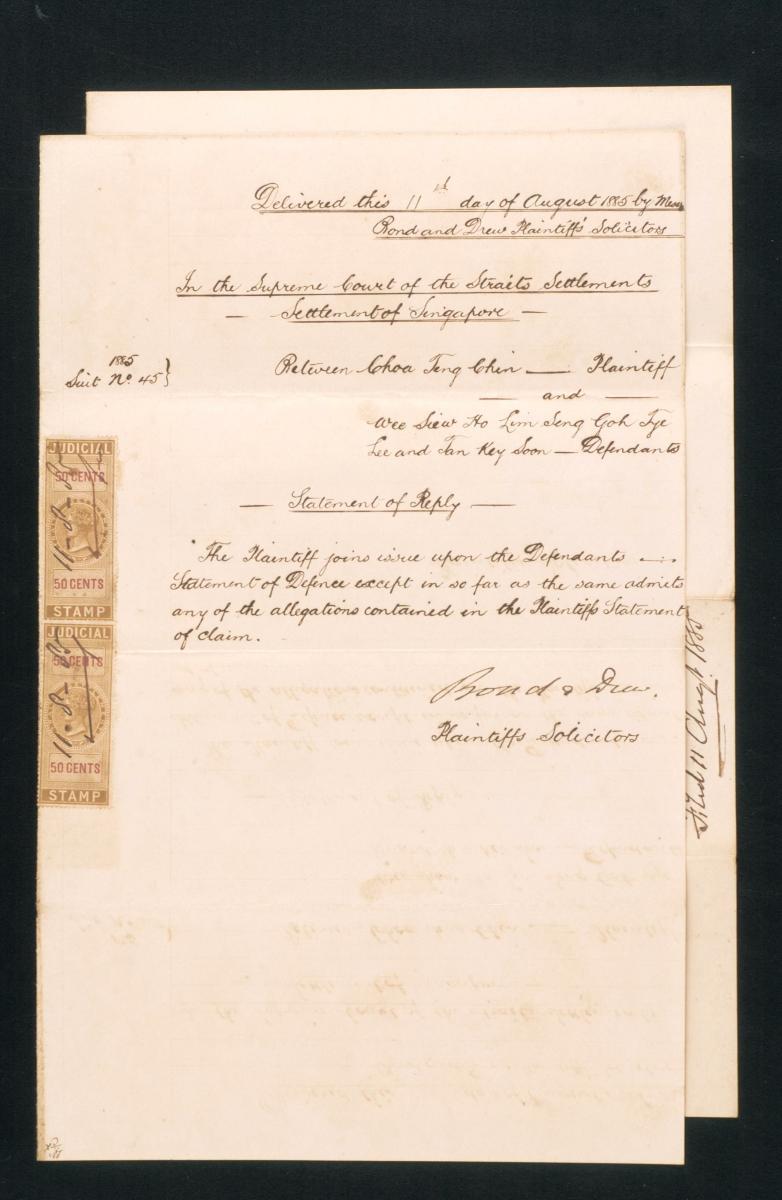 Delivered this 11th day of August 1885 by Messrs
Bond and Drew Plaintiffs' Solicitors
In the Supreme Court of the Straits Settlements
— Settlement of Singapore —
1885
Suit No. 45}
Between Choa Teng Chin — Plaintiff
— and —
Wee Siew Ho Lim Seng Goh Tye
Lee and Tan Key Soon — Defendants
— Statement of Reply —
The Plaintiff joins issue upon the Defendants —
Statement of Defence except in so far as the same admits
any of the allegations contained in the Plaintiffs Statement
of Claim.
Bond & Drew.
Plaintiffs Solicitors
JUDICIAL
50 CENTS
11-8-85
50 CENTS
STAMP
JUDICIAL
50 CENTS
11-8-85
50 CENTS
STAMP
Filed 11 Augt. 1885